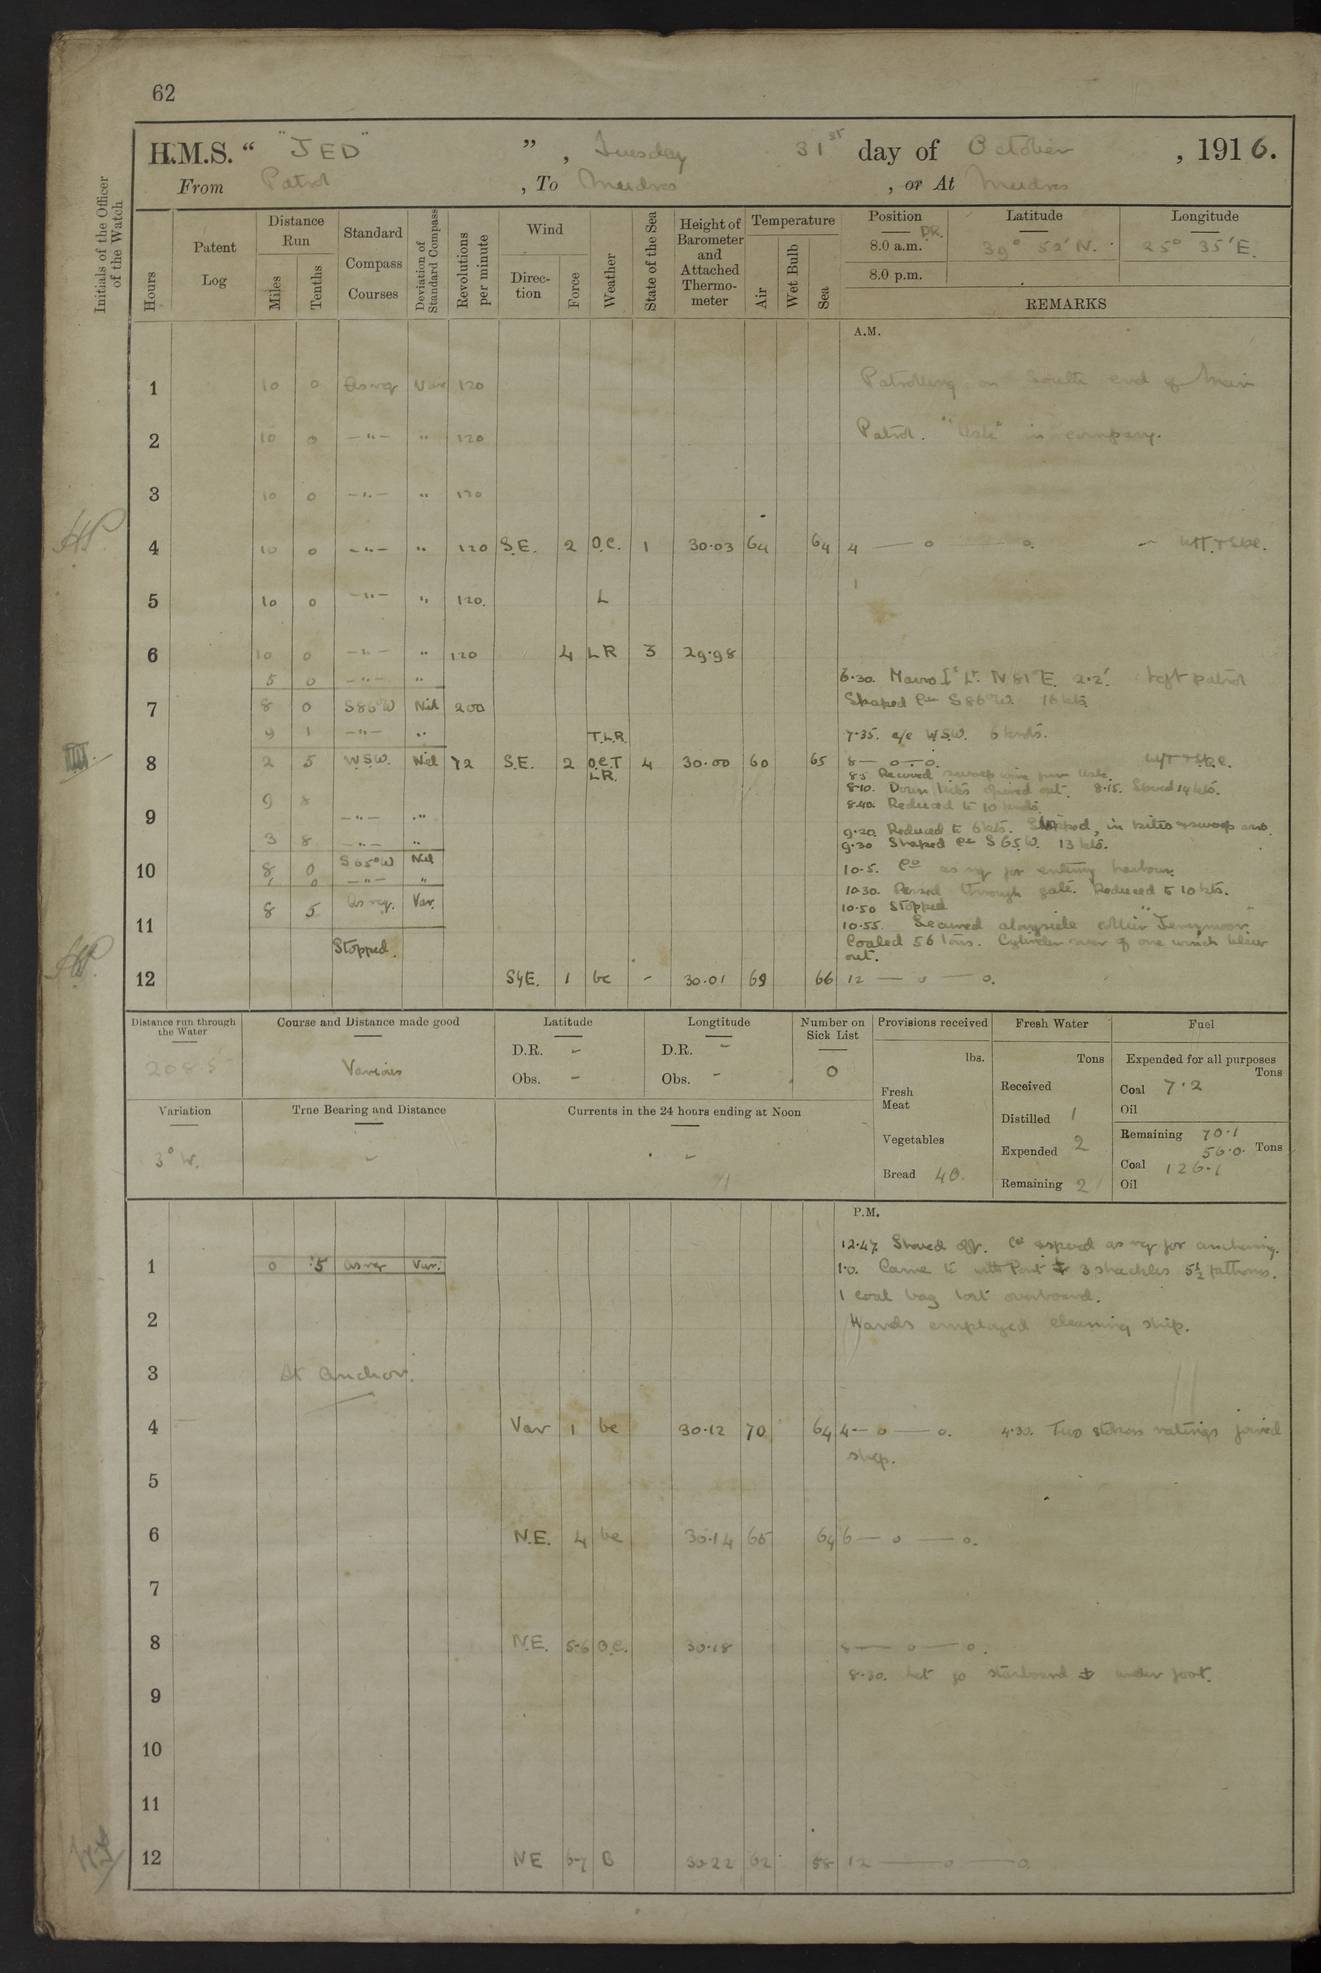 62
H.M.S. " "JED" ", Tuesday 31st day of October, 1916.
From Patrol, To Mudros, or At Mudros
Initials of the Officer of the Watch
Hours
Patent Log
Distance Run
Miles
Tenths
Standard Compass Courses
Deviation of Standard Compass
Revolutions per minute
Wind
Direction
Force
Weather
State of the Sea
Height of Barometer and Attached Thermometer
Temperature
Air
Wet Bulb
Sea
Position DR. Latitude Longitude
8.0 a.m. 39° 52' N. 25° 35' E.
8.0 p.m.
REMARKS
A.M.
1 10 0 As req Var 120 Patrolling on South end of Main
2 10 0 —"— " 120 Patrol. "Usk" in company.
3 10 0 —"— " 120
4 10 0 —"— " 120 S.E. 2 O.C. 1 30.03 64 64 4 — o — o.
5 10 0 —"— " 120. L
6 10 0 —"— " 120 4 LR 3 29.98
5 0 —"— " 6.30. Mavro Id Lt. N 81°E. 2.2'. Left patrol
7 8 0 S86°W Nil 200 Shaped Co S 86°W. 16 kts.
9 1 —"— " T.L.R. 7.35. a/c W.S.W. 6 knots.
8 2 5 W.S.W. Nil 72 S.E. 2 O.C.T L.R. 4 30.00 60 65 8 — o — o.
8.5 Received sweep wire from Usk.
8.10. Down kites opened out. 8.15. Speed 14 kts.
9 8 8.40. Reduced to 10 knots
9 —"— "
3 8 —"— " 9.20. Reduced to 6 kts. Stopped, in kites & sweep and
9.30 Shaped Co S 65 W. 13 kts.
10 8 0 S 65°W Nil 10.5. Co as req for entering harbour.
1 0 —"— " 10.30. Passed through gate. Reduced to 10 kts.
8 5 As req. Var. 10.50 Stopped
11 10.55. Secured alongside collier
Stopped. Coaled 56 tons. Cylinder cover of one winch blew
out.
12 SyE. 1 bc - 30.01 69 66 12 — o — o.
Distance run through the Water
208.5
Course and Distance made good
Various
Latitude
D.R. -
Obs. -
Longtitude
D.R. -
Obs. -
Number on Sick List
0
Provisions received
lbs.
Fresh Meat
Vegetables
Bread 40.
Fresh Water
Tons
Received
Distilled 1
Expended 2
Remaining 2
Fuel
Expended for all purposes
Tons
Coal 7.2
Oil
Remaining 70.1
56.0. Tons
Coal 126.1
Oil
Variation
3° W.
True Bearing and Distance
-
Currents in the 24 hours ending at Noon
-
P.M.
12.47. Shoved off. Co & speed as req for anchoring.
1 0 .5 as req Var. 1.0. Came to with Port ⚓ 3 shackles 5½ fathoms.
1 coal bag lost overboard.
2 Hands employed cleaning ship.
3 At anchor.
4 Var 1 bc 30.12 70 64 4 — o — o. 4.30. Two stokers ratings joined
ship.
5
6 N.E. 4 bc 30.14 65 64 6 — o — o.
7
8 N.E. 5-6 B.C. 30.18 8 — o — o.
8.30. Let go starboard ⚓ under foot.
9
10
11
12 NE 6-7 B 30.22 62 58 12 — o — o.